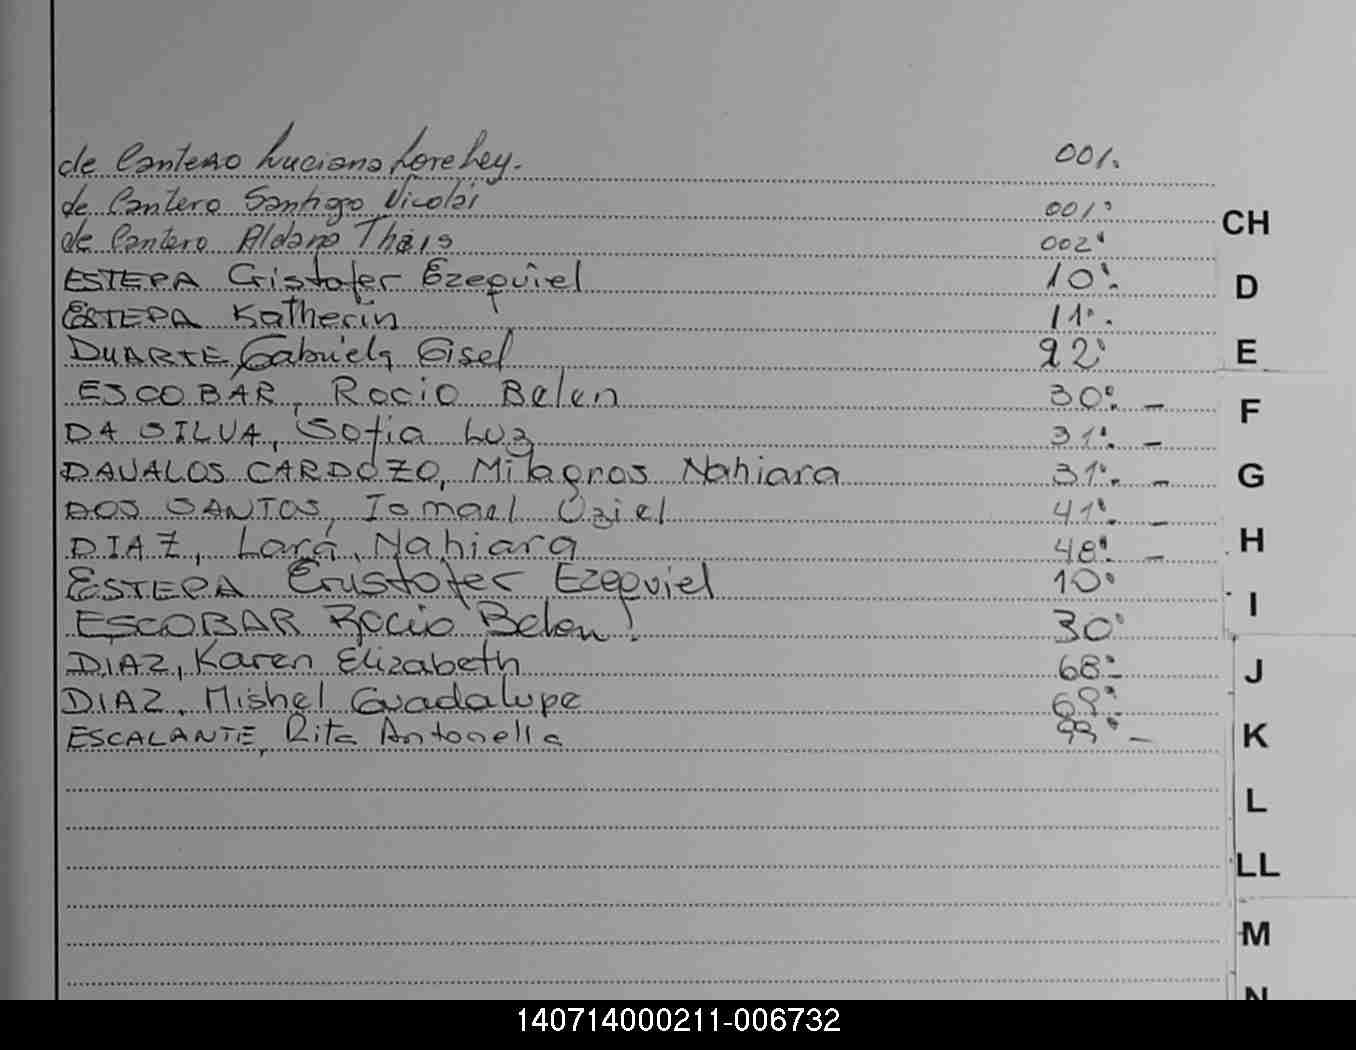 de Cantero Luciana Loreley. 001.
de Cantero Santiago Nicolás 001.
de Cantero Aldana Thais 002
ESTEPA Cristofer Ezequiel 10
ESTEPA Katherin 11
DUARTE, Gabriela Gisel 22
ESCOBAR, Rocio Belen 30 -
DA SILVA, Sofia Luz 31 -
DAVALOS CARDOZO, Milagros Nahiara 31 -
DOS SANTOS, Ismael Uziel 41 -
DIAZ, Lara Nahiara 48 -
ESTEPA Cristofer Ezequiel 10
ESCOBAR Rocio Belen 30
DIAZ, Karen Elizabeth 68
DIAZ, Mishel Guadalupe
ESCALANTE, Rita Antonella -
CH
D
E
F
G
H
I
J
K
L
LL
M
N
140714000211-006732